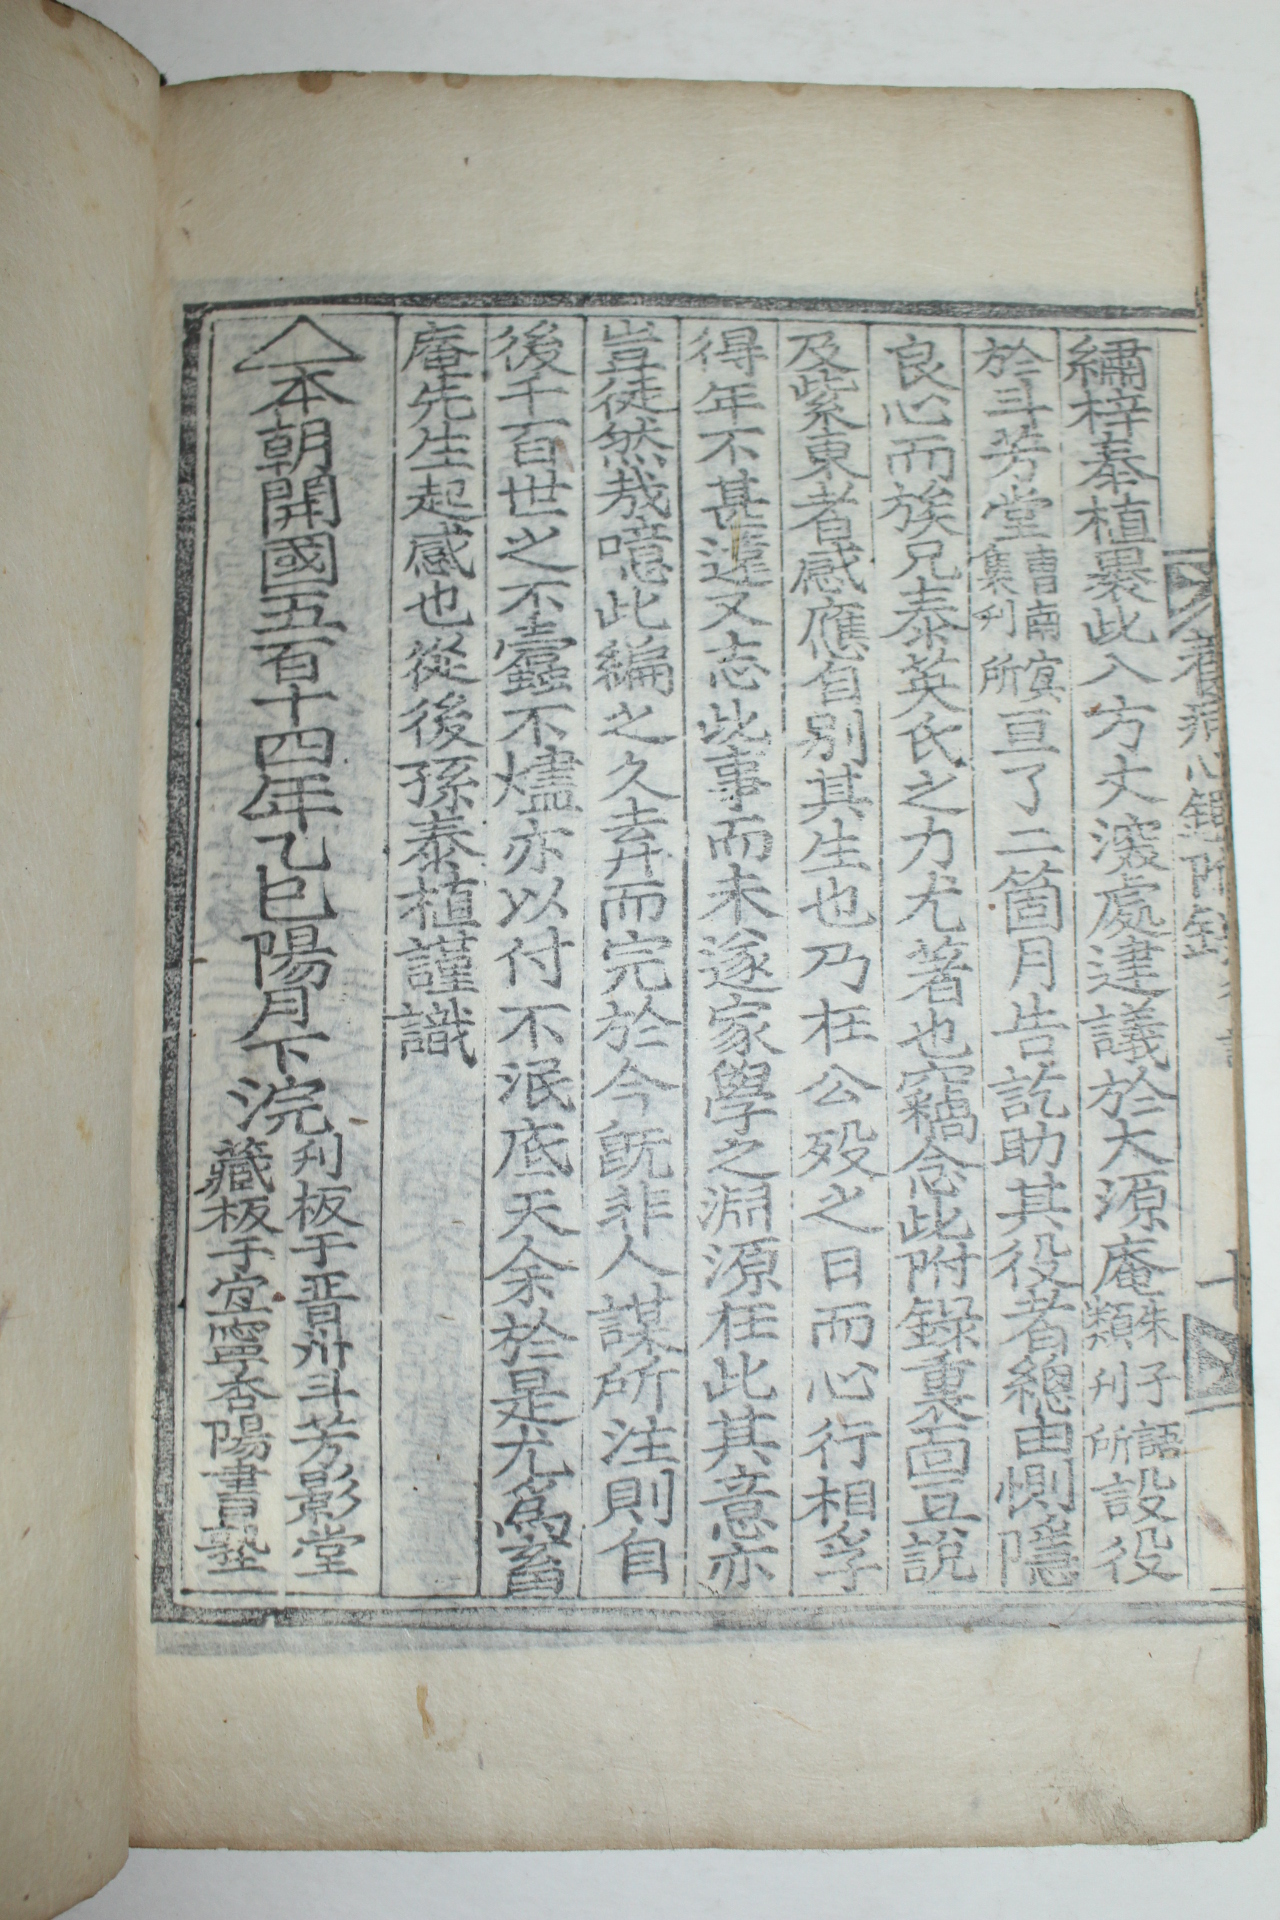 繡梓奉植畏此入方丈深處建議於大源庵朱子語類刊所設役
於斗芳堂曺南冥集刊所亘了二箇月告訖助其役者總由惻隱
良心而族兄泰英氏之力尤著也竊念此附錄裏面互說
及紫東者感應自別其生也乃在公歿之日而心行相孚
得年不甚遠又志此事而未遂家學之淵源在此其意亦
豈徒然哉噫此編之久去弆而完於今旣非人謀所注則自
後千百世之不蠹不燼亦以付不泯底天余於是尤爲蓄
庵先生起感也從後孫泰植謹識
本朝開國五百十四年乙巳陽月下浣
刊板于晋州斗芳影堂
藏板于宜寧杏陽書塾